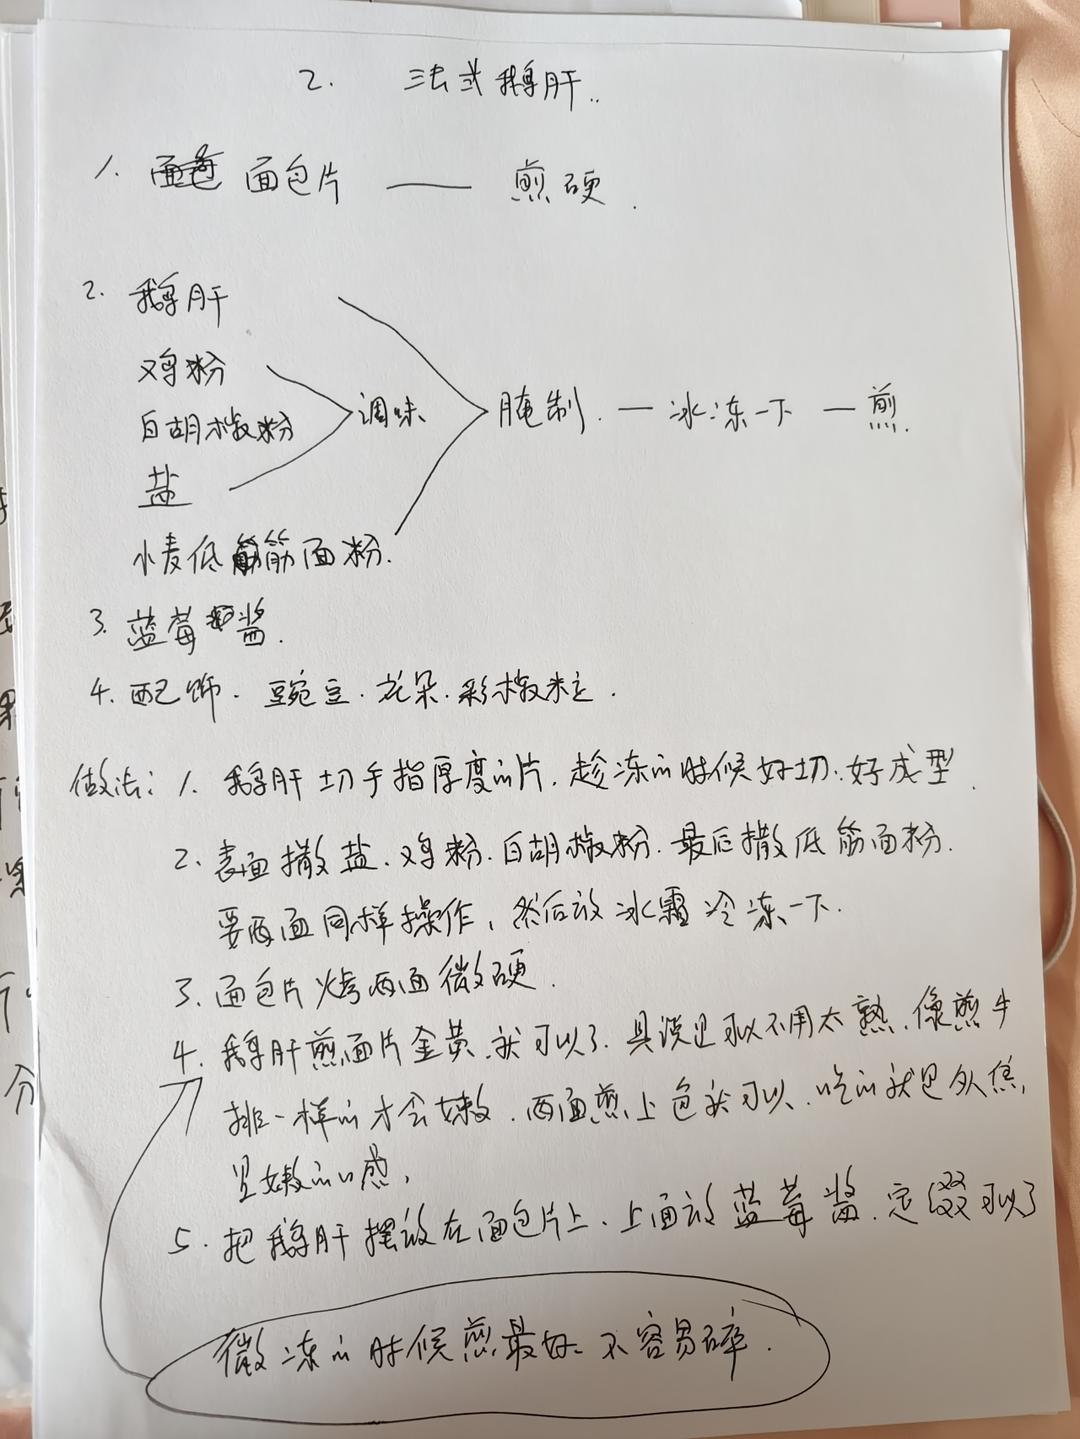 2. 法式鹅肝..
1. 面包片 —— 煎硬.
2. 鹅肝
鸡粉
白胡椒粉
盐
小麦低筋面粉.
调味
腌制. — 冰冻一下 — 煎.
3. 蓝莓酱.
4. 配饰. 豌豆. 花朵. 彩椒粒.
做法: 1. 鹅肝切手指厚度的片, 趁冻的时候好切. 好成型.
2. 表面撒盐. 鸡粉. 白胡椒粉. 最后撒低筋面粉.
要两面同样操作, 然后放冰霜冷冻一下.
3. 面包片烤两面微硬.
4. 鹅肝煎面片金黄, 就可以了. 可以不用太熟, 像煎牛
排一样的才会嫩. 两面煎上色就可以, 吃的就是外焦,
里嫩的口感,
5. 把鹅肝摆放在面包片上. 上面放蓝莓酱. 可以了
微冻的时候煎最好. 不容易碎.